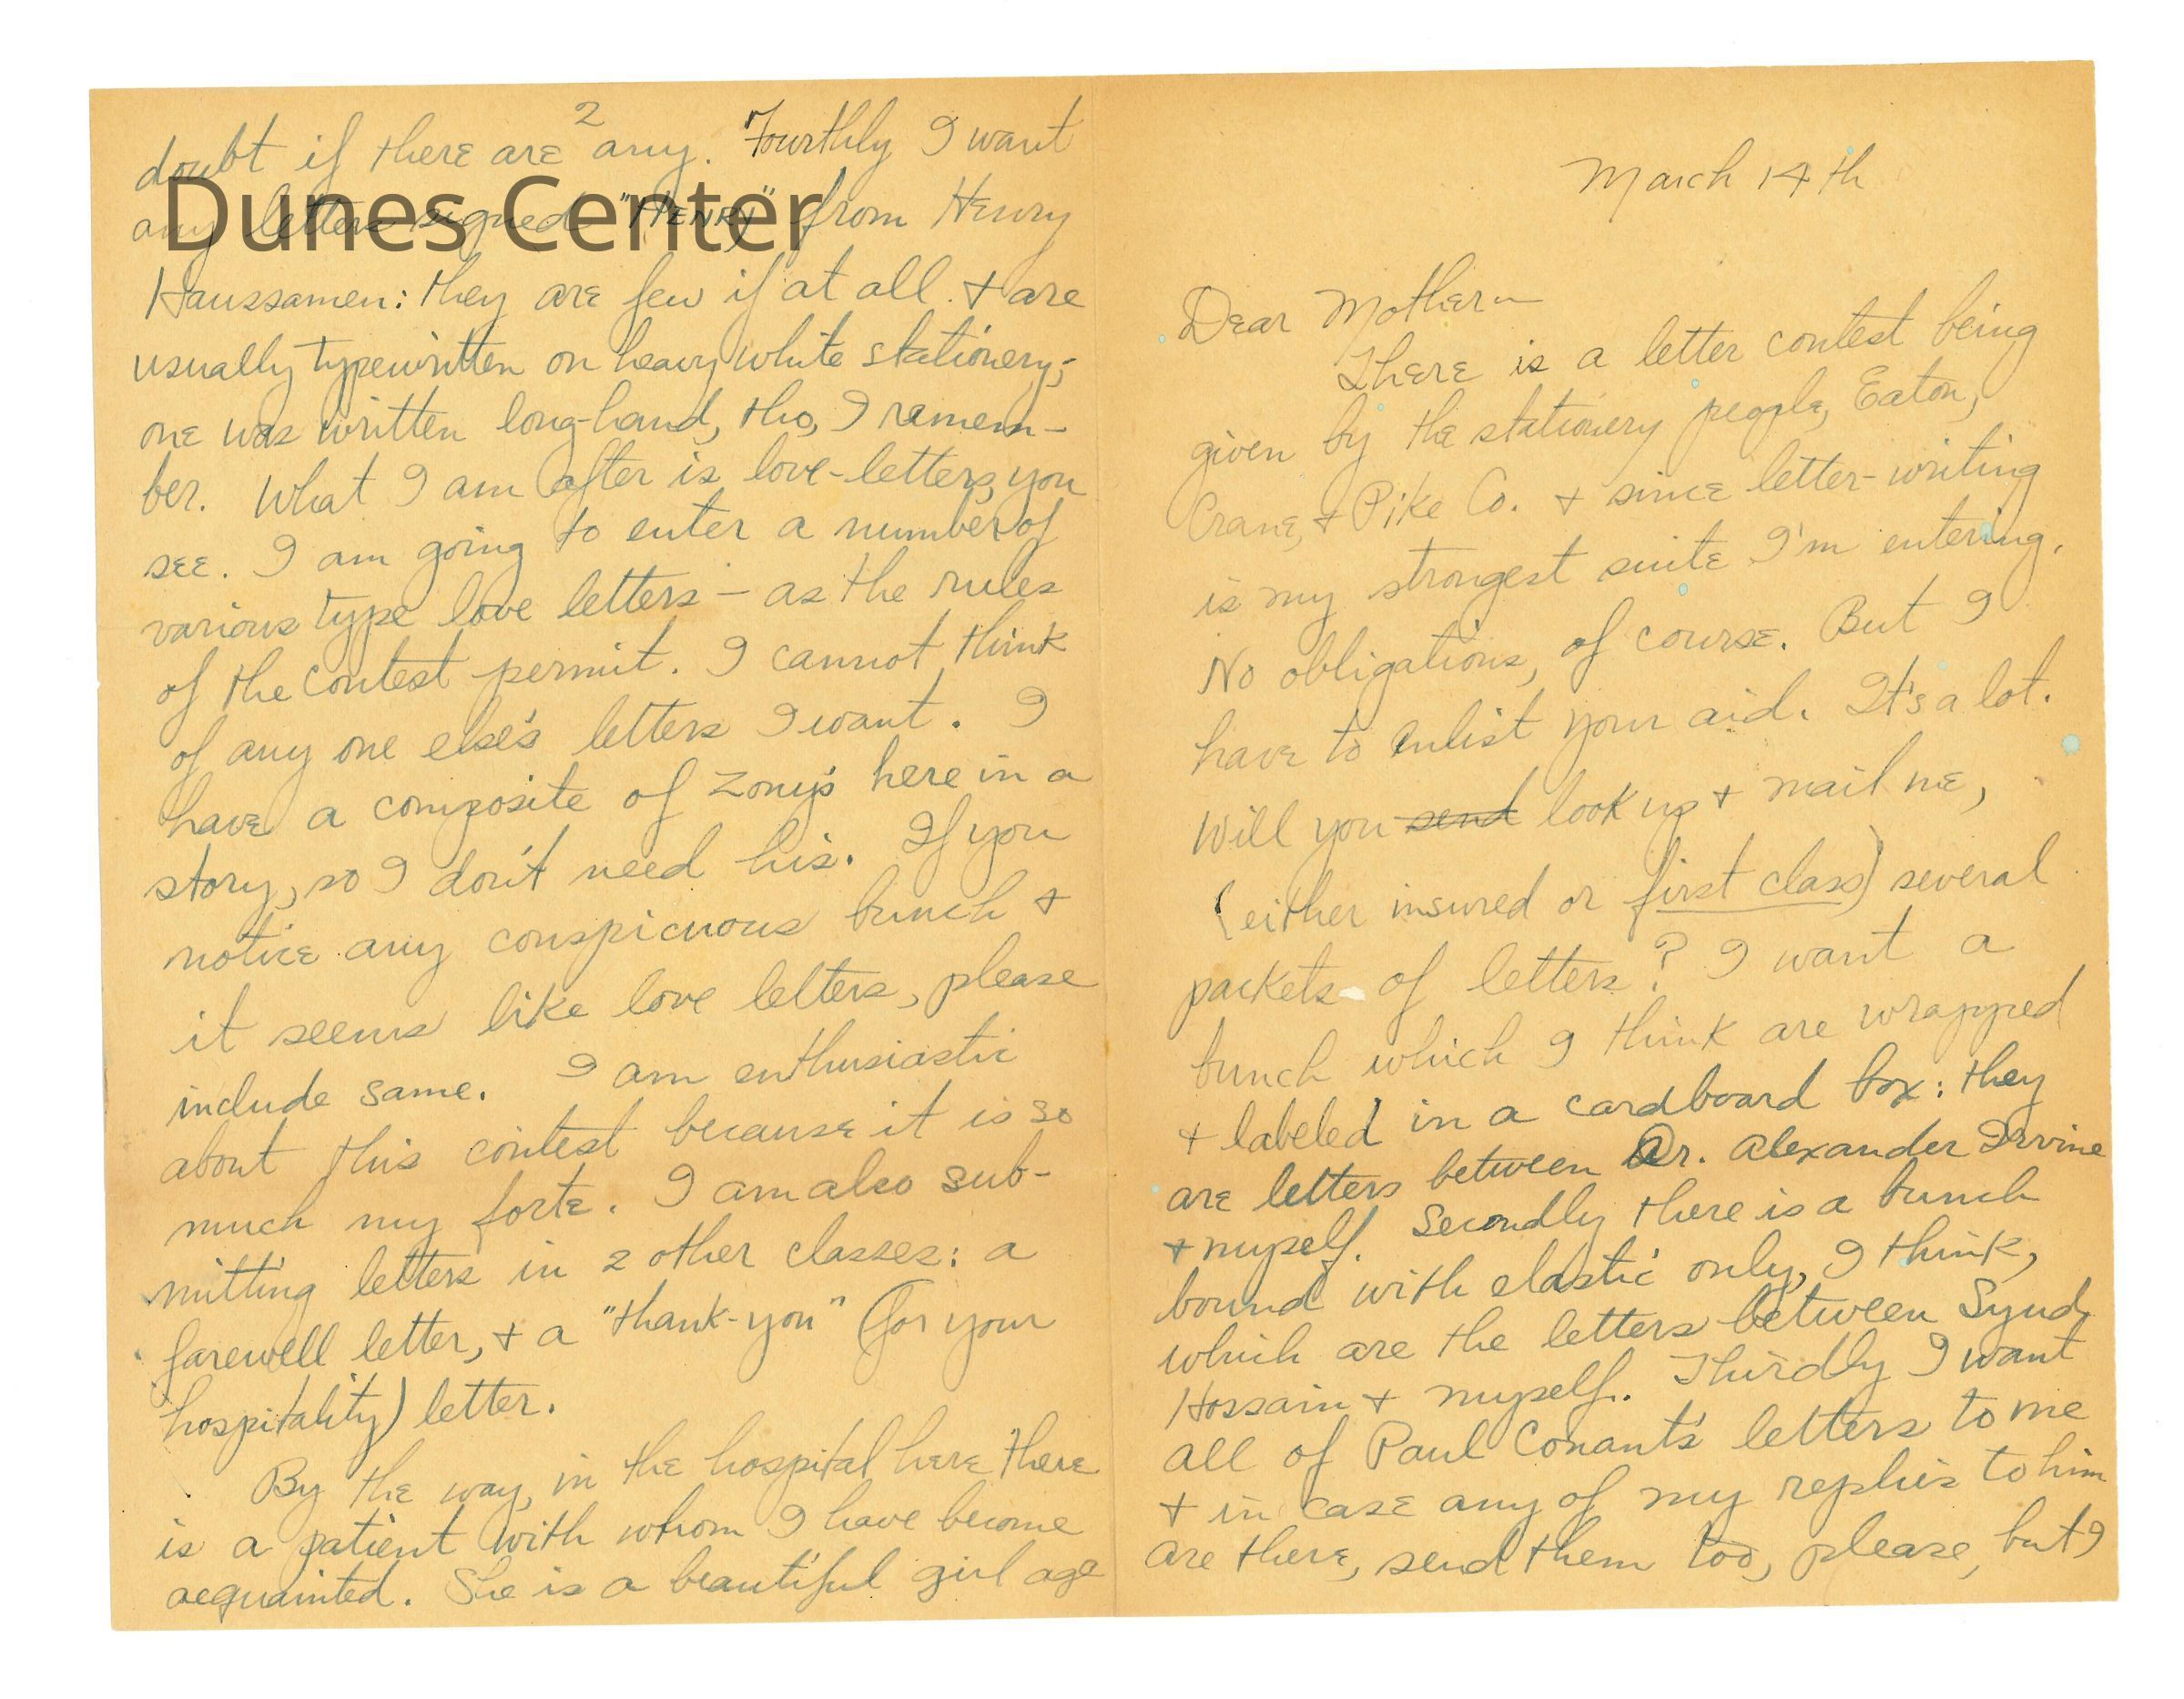 March 14th
Dear Mother—
There is a letter contest being
given by the stationery people, Eaton,
Crane, + Pike Co. + since letter-writing
is my strongest suite I'm entering.
No obligations, of course. But I
have to enlist your aid. It's a lot.
Will you send look up + mail me,
(either insured or first class) several
packets of letters? I want a
bunch which I think are wrapped
+ labeled in a cardboard box: they
are letters between Dr. Alexander Irvine
+ myself. Secondly there is a bunch
bound with elastic only, I think,
which are the letters between Syud
Hossain + myself. Thirdly I want
all of Paul Conant's letters to me
+ in case any of my replies to him
are there, send them too, please, but I
2
doubt if there are any. Fourthly I want
any letters signed "HENRY" from Henry
Dunes Center
Haussamen: they are few if at all + are
usually typewritten on heavy white stationery;
one was written long-hand, tho, I remem-
ber. What I am after is love-letters, you
see. I am going to enter a number of
various type love letters — as the rules
of the contest permit. I cannot think
of any one else's letters I want. I
have a composite of Zony's here in a
story, so I don't need his. If you
notice any conspicuous bunch +
it seems like love letters, please
include same. I am enthusiastic
about this contest because it is so
much my forte. I am also sub-
mitting letters in 2 other classes: a
farewell letter, + a "thank-you" (for your
hospitality) letter.
By the way, in the hospital here there
is a patient with whom I have become
acquainted. She is a beautiful girl age